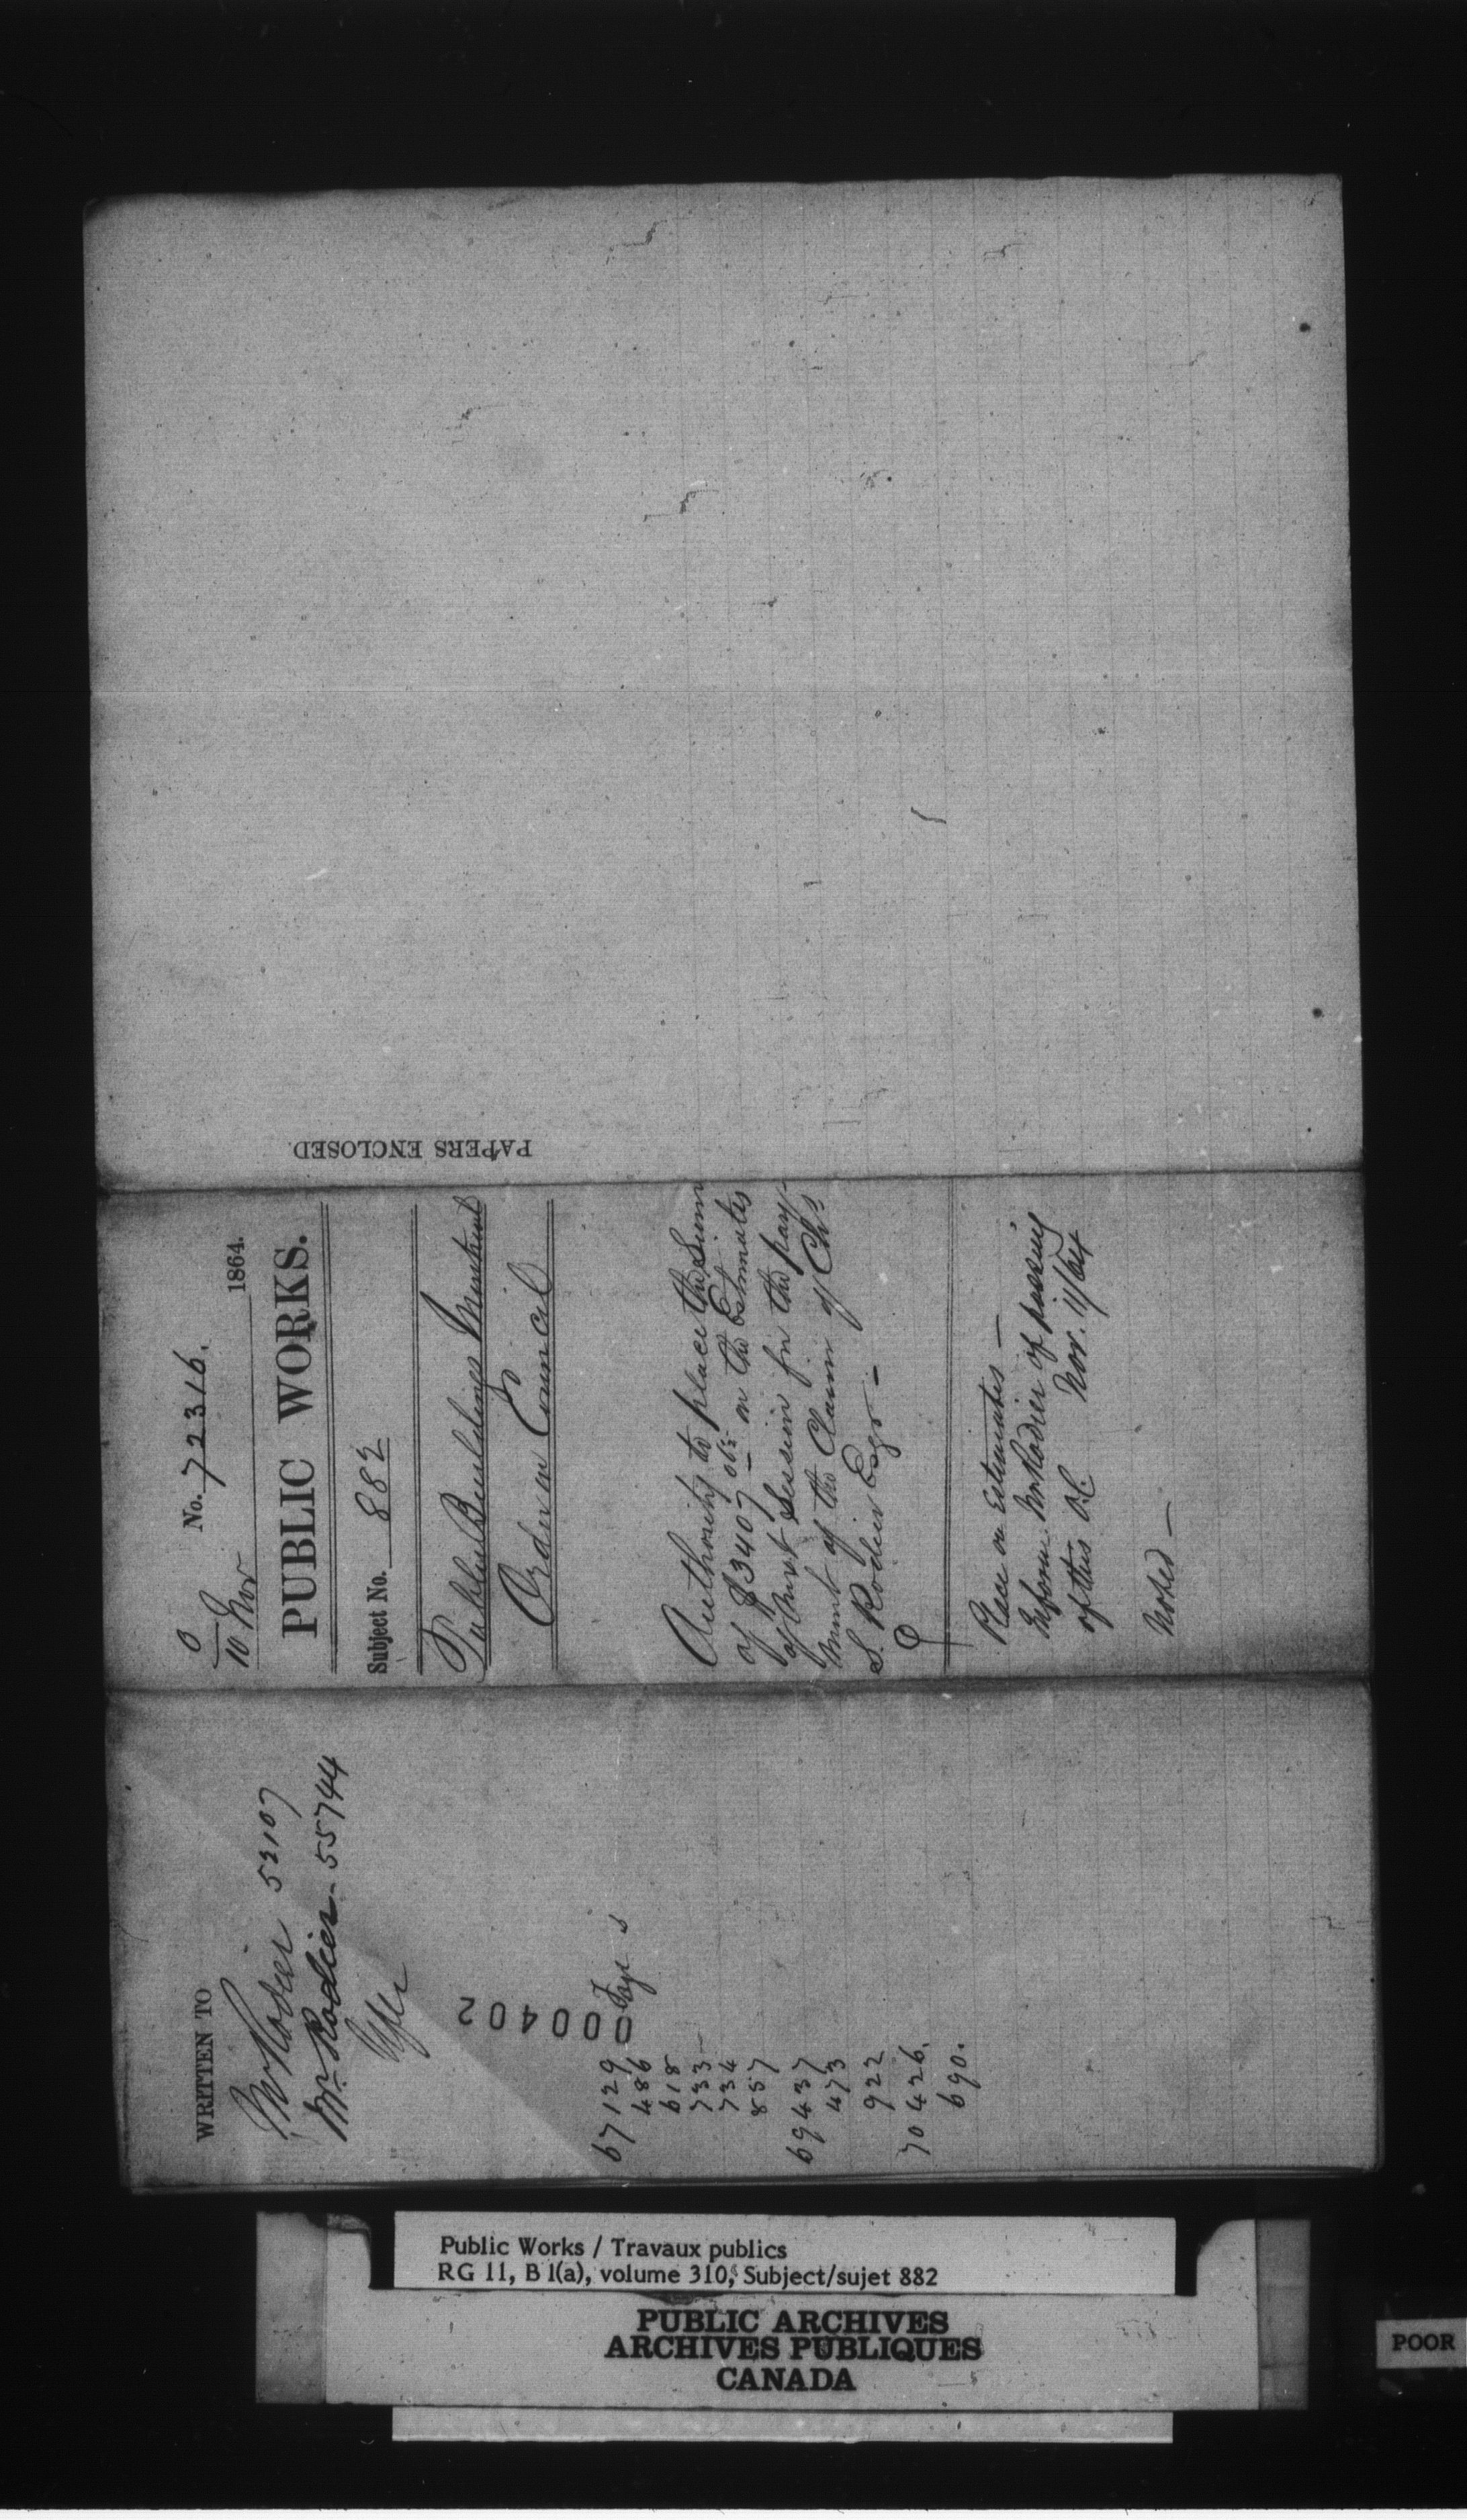 WRITTEN TO
Mr Rodier 52107
Mr. Rodier - 55744
000402
67129
486
618
733
734
857
69437
473
922
70426.
690.
No. 72316.
10 Nov 1864.
PUBLIC WORKS.
Subject No. 882
Public Buildings Montreal
Order in Council
Authority to place the Sum
of $3407 06/5 on the Estimates
of next Session for the pay-
ment of the Claim of Chs
S. Rodier Esqr -
Place on Estimates —
Inform Mr Rodier of passing
of this O.C. Nov. 11/64
Noted —
PAPERS ENCLOSED.
Public Works / Travaux publics
RG 11, B 1(a), volume 310, Subject/sujet 882
PUBLIC ARCHIVES
ARCHIVES PUBLIQUES
CANADA
POOR